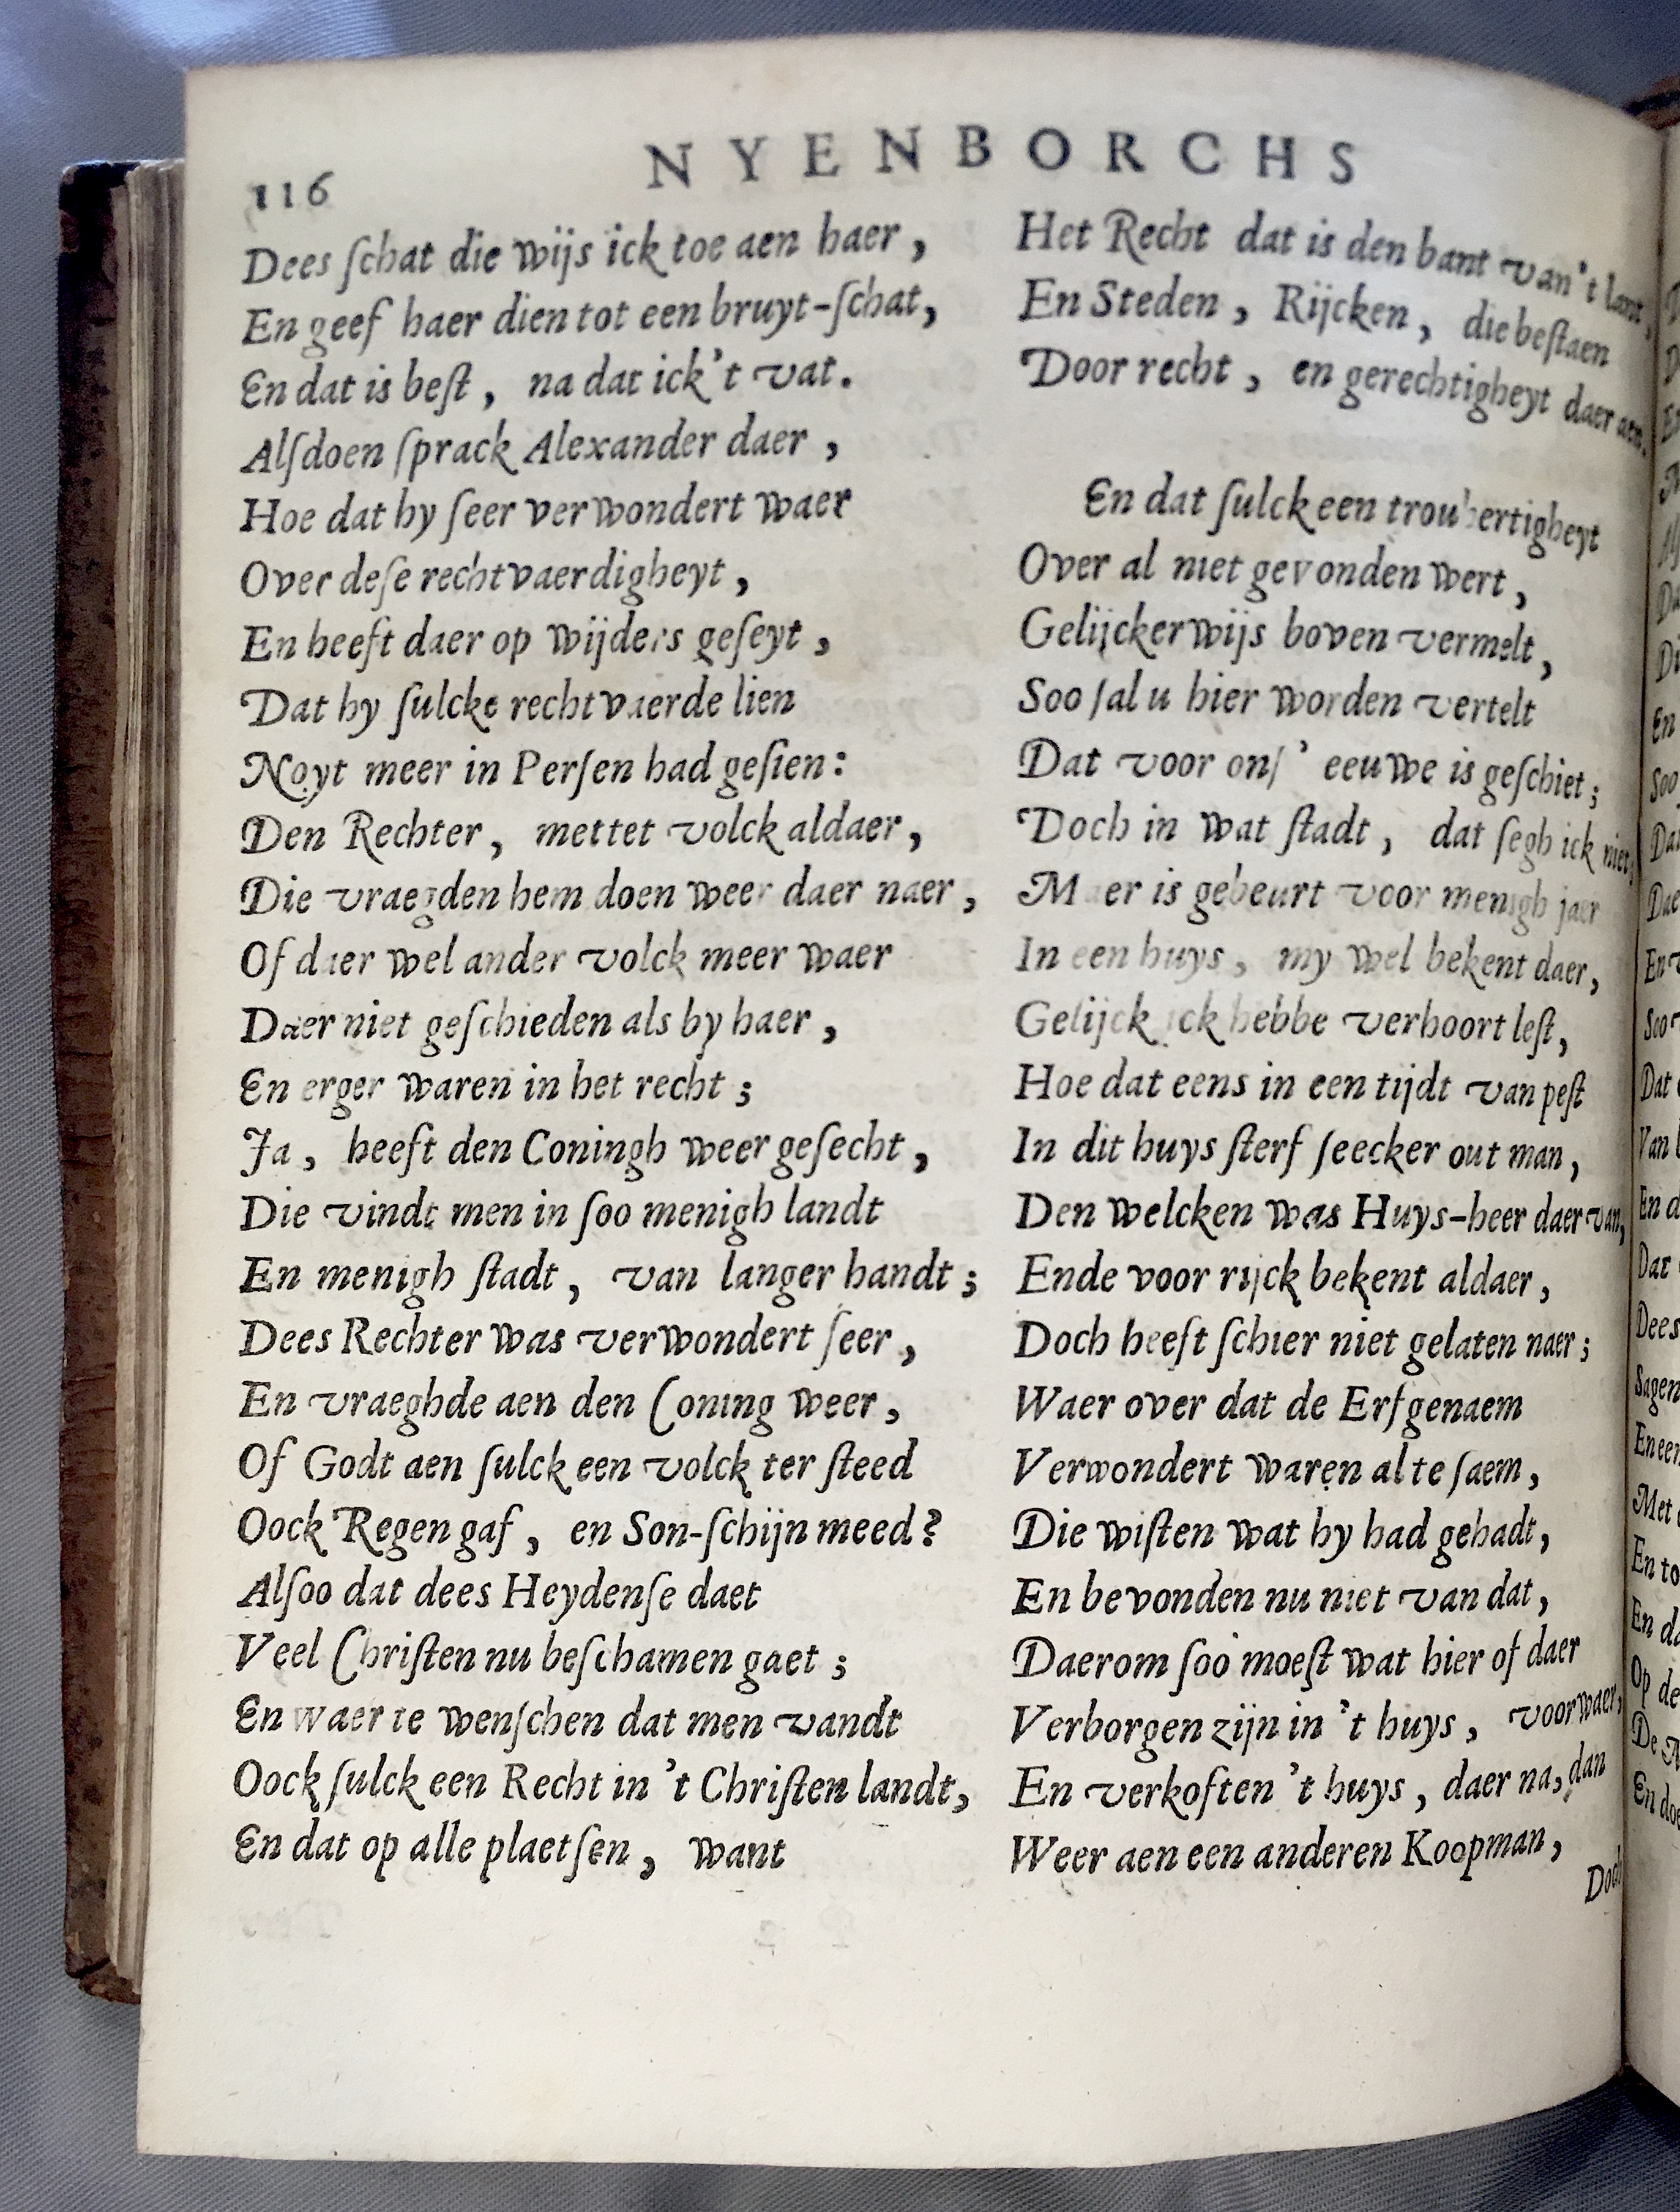 116
NYENBORCHS
Dees ſchat die wijs ick toe aen haer,
En geef haer dien tot een bruyt-ſchat,
En dat is beſt, na dat ick't vat.
Alſdoen ſprack Alexander daer,
Hoe dat hy ſeer verwondert waer
Over deſe rechtvaerdigheyt,
En heeft daer op wijders geſeyt,
Dat hy ſulcke rechtvaerde lien
Noyt meer in Perſen had geſien:
Den Rechter, mettet volck aldaer,
Die vraegden hem doen weer daer naer,
Of daer wel ander volck meer waer
Daer niet geſchieden als by haer,
En erger waren in het recht;
Ja, heeft den Coningh weer geſecht,
Die vindt men in ſoo menigh landt
En menigh ſtadt, van langer handt;
Dees Rechter was verwondert ſeer,
En vraeghde aen den Coning weer,
Of Godt aen ſulck een volck ter ſteed
Oock Regen gaf, en Son-ſchijn meed?
Alſoo dat dees Heydenſe daet
Veel Chriſten nu beſchamen gaet;
En waer te wenſchen dat men vandt
Oock ſulck een Recht in 't Chriſten landt,
En dat op alle plaetſen, want
Het Recht dat is den bant van't lant,
En Steden, Rijcken, die beſtaen
Door recht, en gerechtigheyt daer aen.
En dat ſulck een trouhertigheyt
Over al niet gevonden wert,
Gelijckerwijs boven vermelt,
Soo ſal u hier worden vertelt
Dat voor onſ' eeuwe is geſchiet;
Doch in wat ſtadt, dat ſegh ick niet,
Maer is gebeurt voor menigh jaer
In een huys, my wel bekent daer,
Gelijck ick hebbe verhoort leſt,
Hoe dat eens in een tijdt van peſt
In dit huys ſterf ſeecker out man,
Den welcken was Huys-heer daer van,
Ende voor rijck bekent aldaer,
Doch heeft ſchier niet gelaten naer;
Waer over dat de Erfgenaem
Verwondert waren al te ſaem,
Die wiſten wat hy had gehadt,
En bevonden nu niet van dat,
Daerom ſoo moeſt wat hier of daer
Verborgen zijn in 't huys, voorwaer,
En verkoften 't huys, daer na, dan
Weer aen een anderen Koopman,
Doch